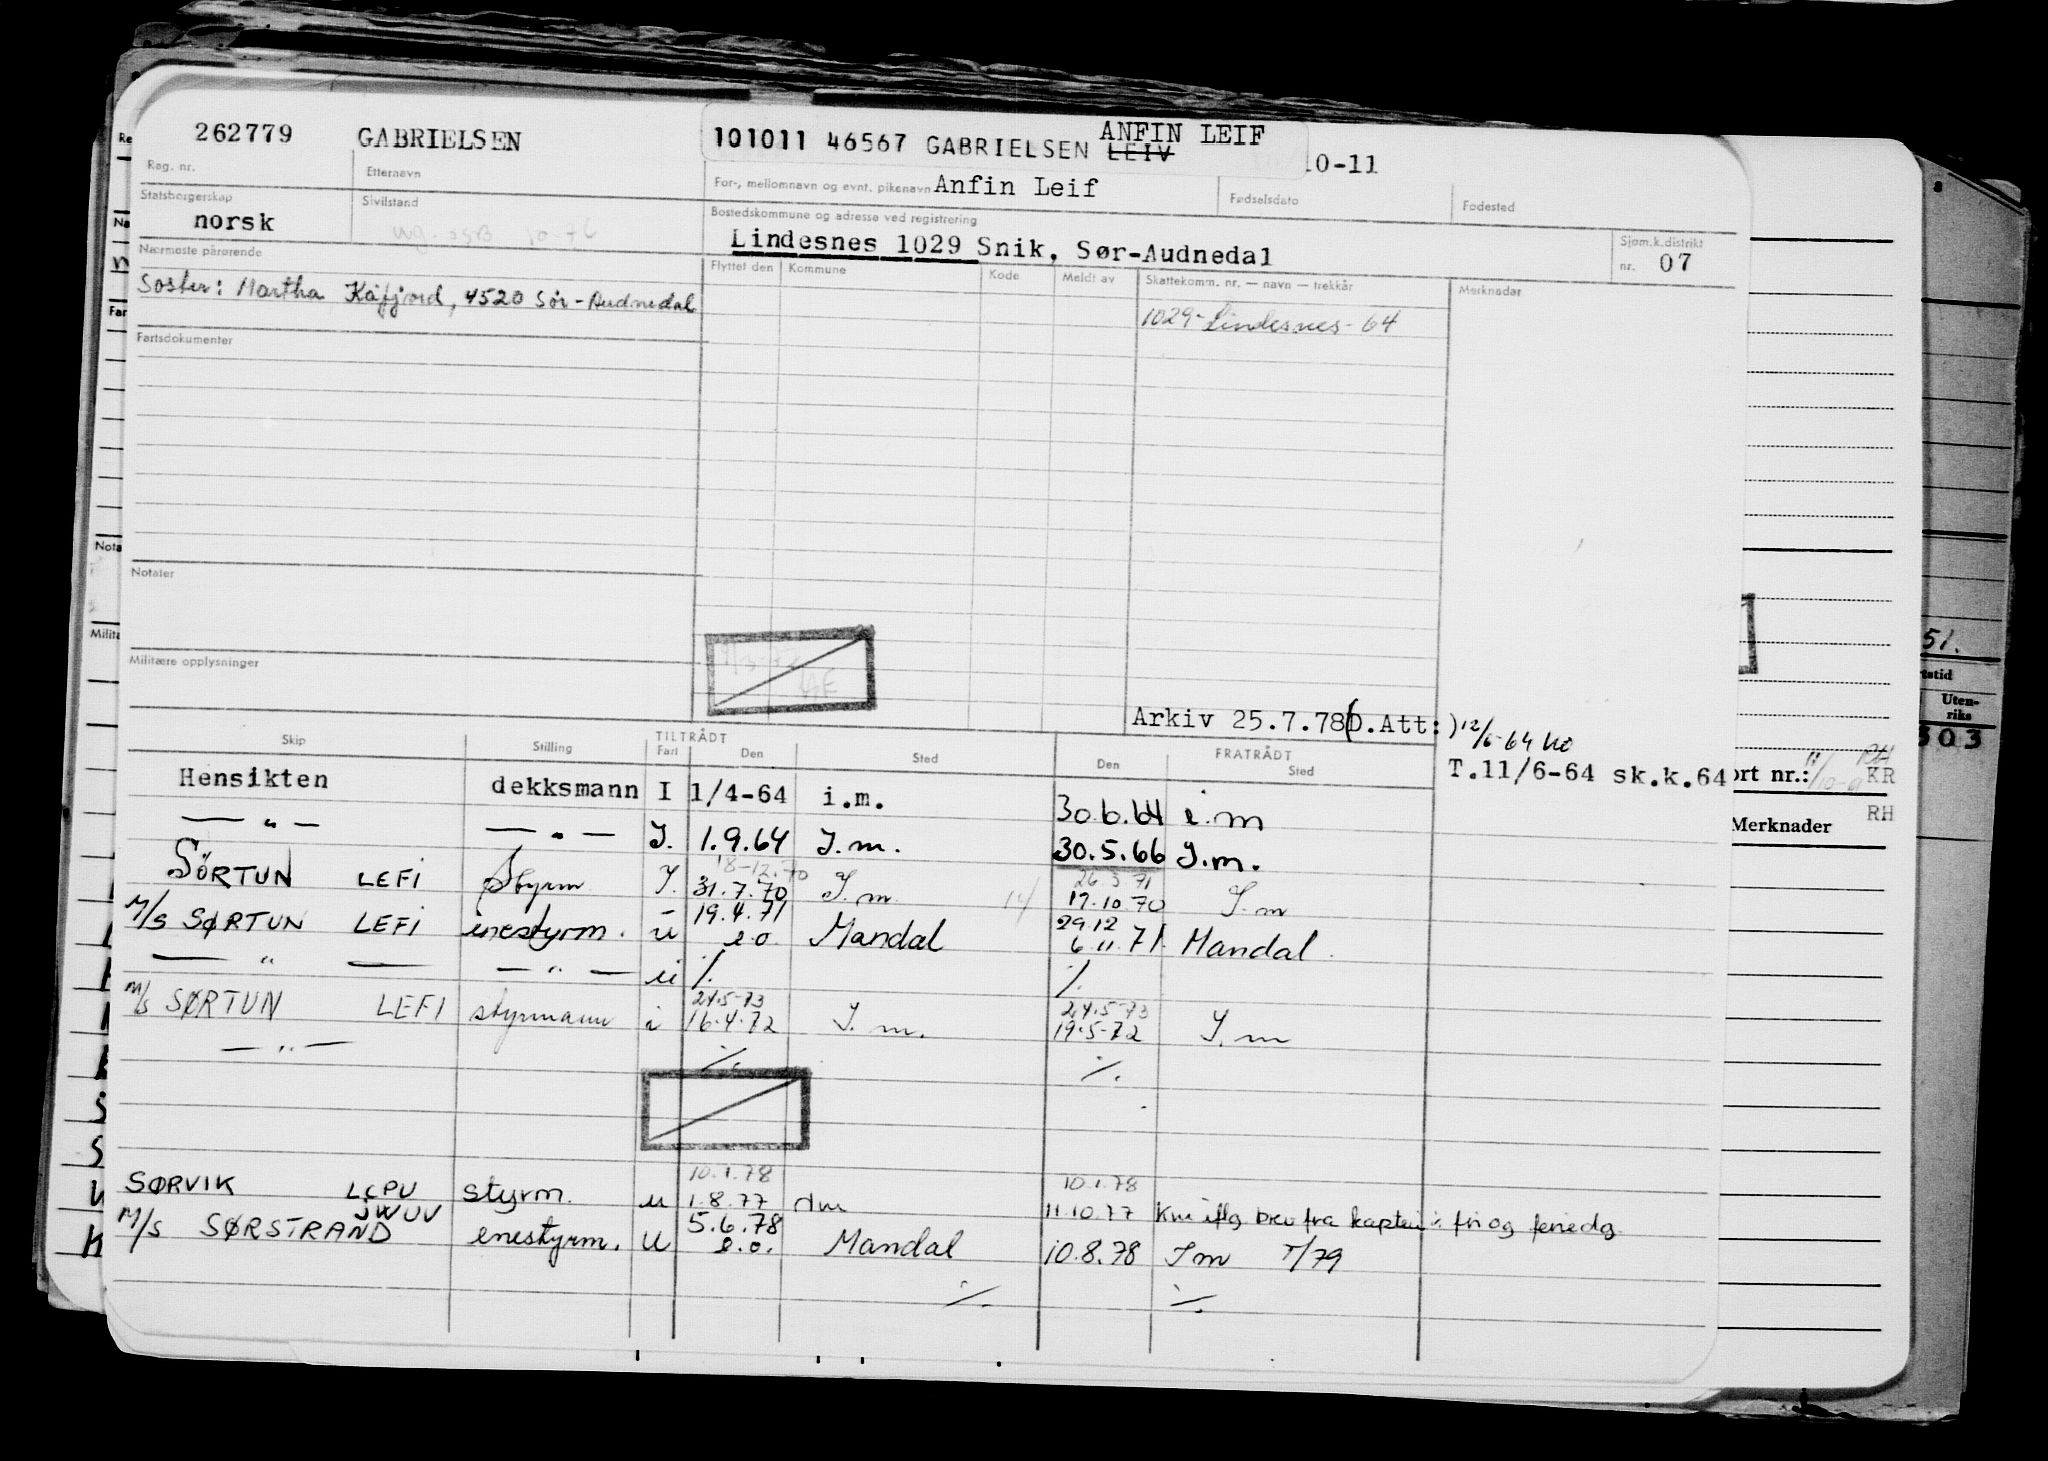 262779 GABRIELSEN 101011 46567 GABRIELSEN LEIV ANFIN LEIF 10-11
Reg. nr. Etternavn For-, mellomnavn og evnt. pikenavn Anfin Leif Fødselsdato Fødested
Statsborgerskap Sivilstand Bostedskommune og adresse ved registrering Sjøm.k.distrikt
norsk Lindesnes 1029 Snik, Sør-Audnedal nr. 07
Nærmeste pårørende Flyttet den Kommune Kode Meldt av Skattekomm. nr. — navn — trekkår Merknader
Søster: Martha Kåfjord, 4520 Sør-Audnedal
1029- Lindesnes - 64
Fartsdokumenter
Notater
Militære opplysninger
Arkiv 25.7.78(D.Att:) 12/6-64
T.11/6-64 sk.k.64
Skip Stilling TILTRÅDT Fart Den Sted FRATRÅDT Den Sted
Hensikten dekksmann I 1/4-64 i.m. 30.6.64 i.m
— " — — " — I. 1.9.64 I.m. 30.5.66 I.m.
18-12.70 26 3 71
SÖRTUN LEFI Styrm I. 31.7.70 I.m 14 17.10.70 I.m
19.4.71 29.12
M/S SØRTUN LEFI enestyrm. u e.o. Mandal 6.11.71 Mandal.
— " — — " — u ./. ./.
24.5-73 24.5-73
M/S SØRTUN LEFI styrmann i 16.4.72 I.m. 19.5-72 I.m
— " — ./. ./.
10.1.78 10.1.78
SØRVIK LCPU styrm. u 1.8.77 11.10.77 brev fra kaptein
JWUV 5.6.78
M/S SØRSTRAND enestyrm. U e.o. Mandal 10.8.78 I m T/79
./. ./.
ort nr.: KR
RH
Merknader
51.
rtstid
Uten-
riks
303